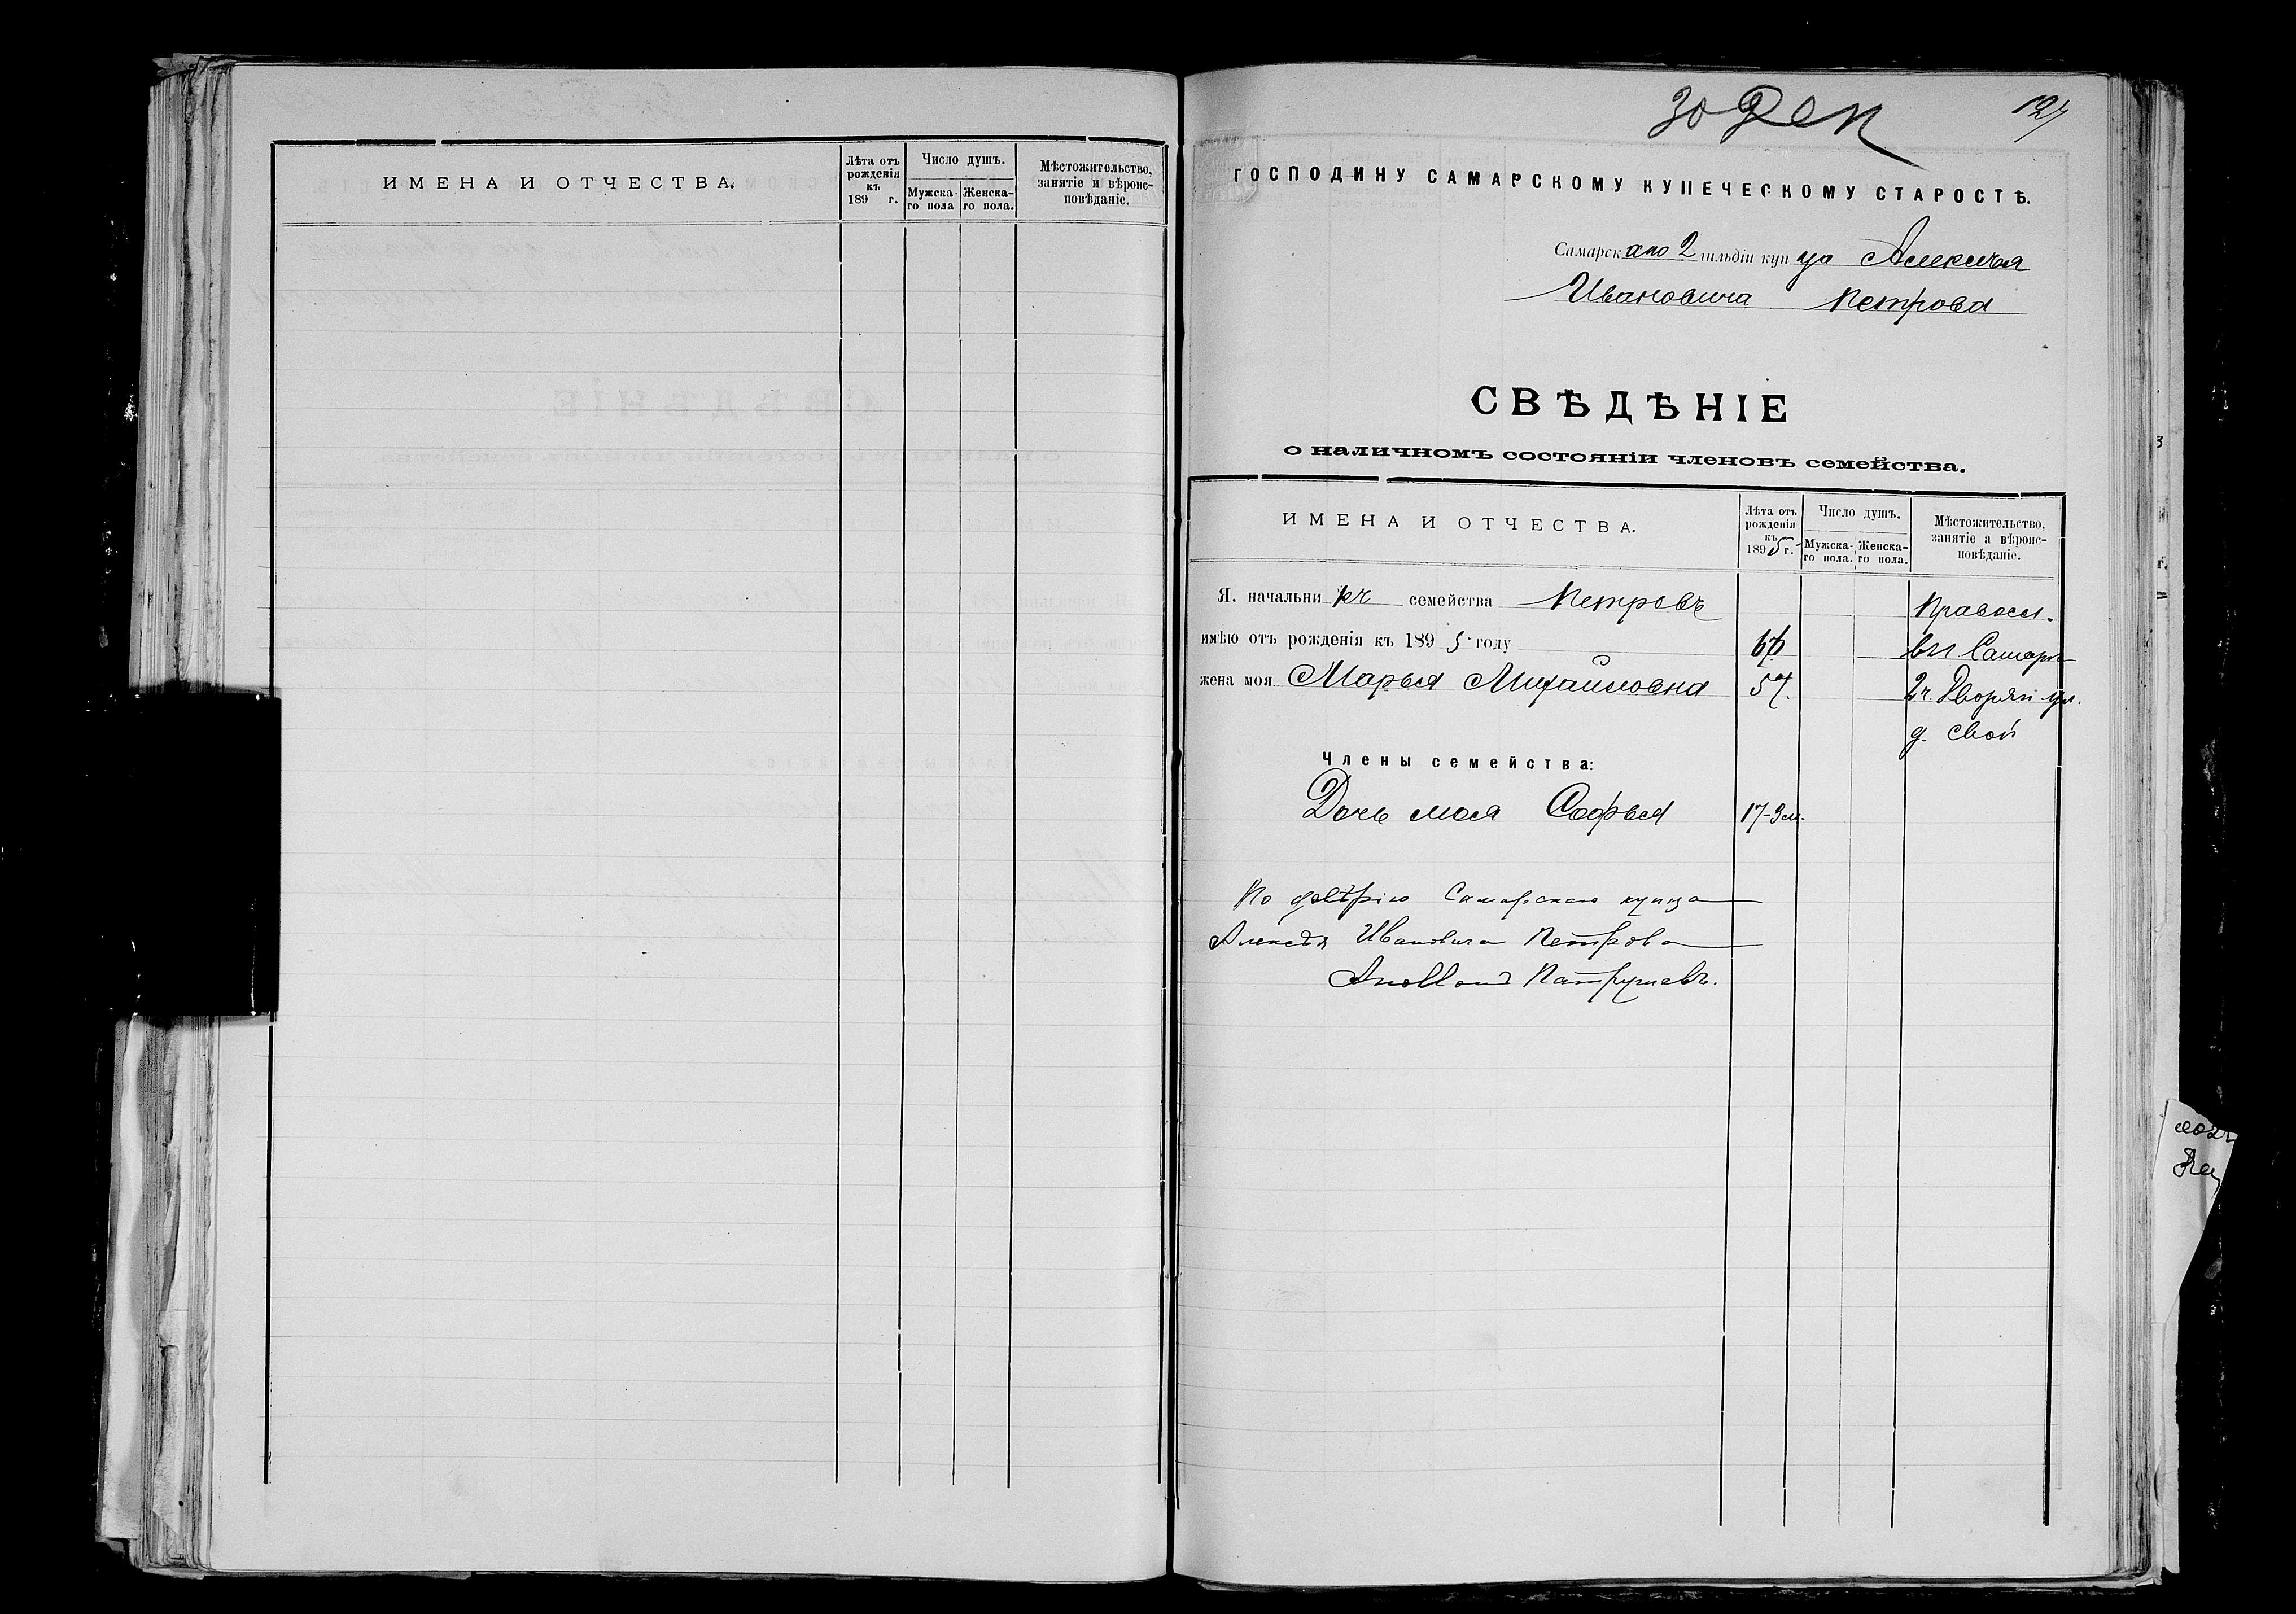 ИМЕНА И ОТЧЕСТВА.
Лѣта отъ рожденія къ 189 г.
Число душъ.
Мужска-го пола
Женска-го пола.
Мѣстожительство, занятіе и вѣроис-повѣданіе.
30 Дек
127
ГОСПОДИНУ САМАРСКОМУ КУПЕЧЕСКОМУ СТАРОСТѢ.
Самарскаго 2 гильдіи купца Алексѣя
Ивановича Петрова
СВѢДѢНІЕ
о наличномъ состояніи членовъ семейства.
ИМЕНА И ОТЧЕСТВА.
Лѣта отъ рожденія къ 1895 г.
Число душъ.
Мужска-го пола.
Женска-го пола.
Мѣстожительство, занятіе а вѣроис-повѣданіе.
Я. начальникъ семейства Петровъ Правосл.
имѣю отъ рожденія къ 1895 году въ Самарѣ
жена моя Марья Михайловна 57. 2 ч. Дворян ул.
д. свой
Члены семейства:
Дочь моя Софья 17-3 м.
По довѣрію Самарскаго купца
Алексѣя Ивановича Петрова
Патрушевъ.